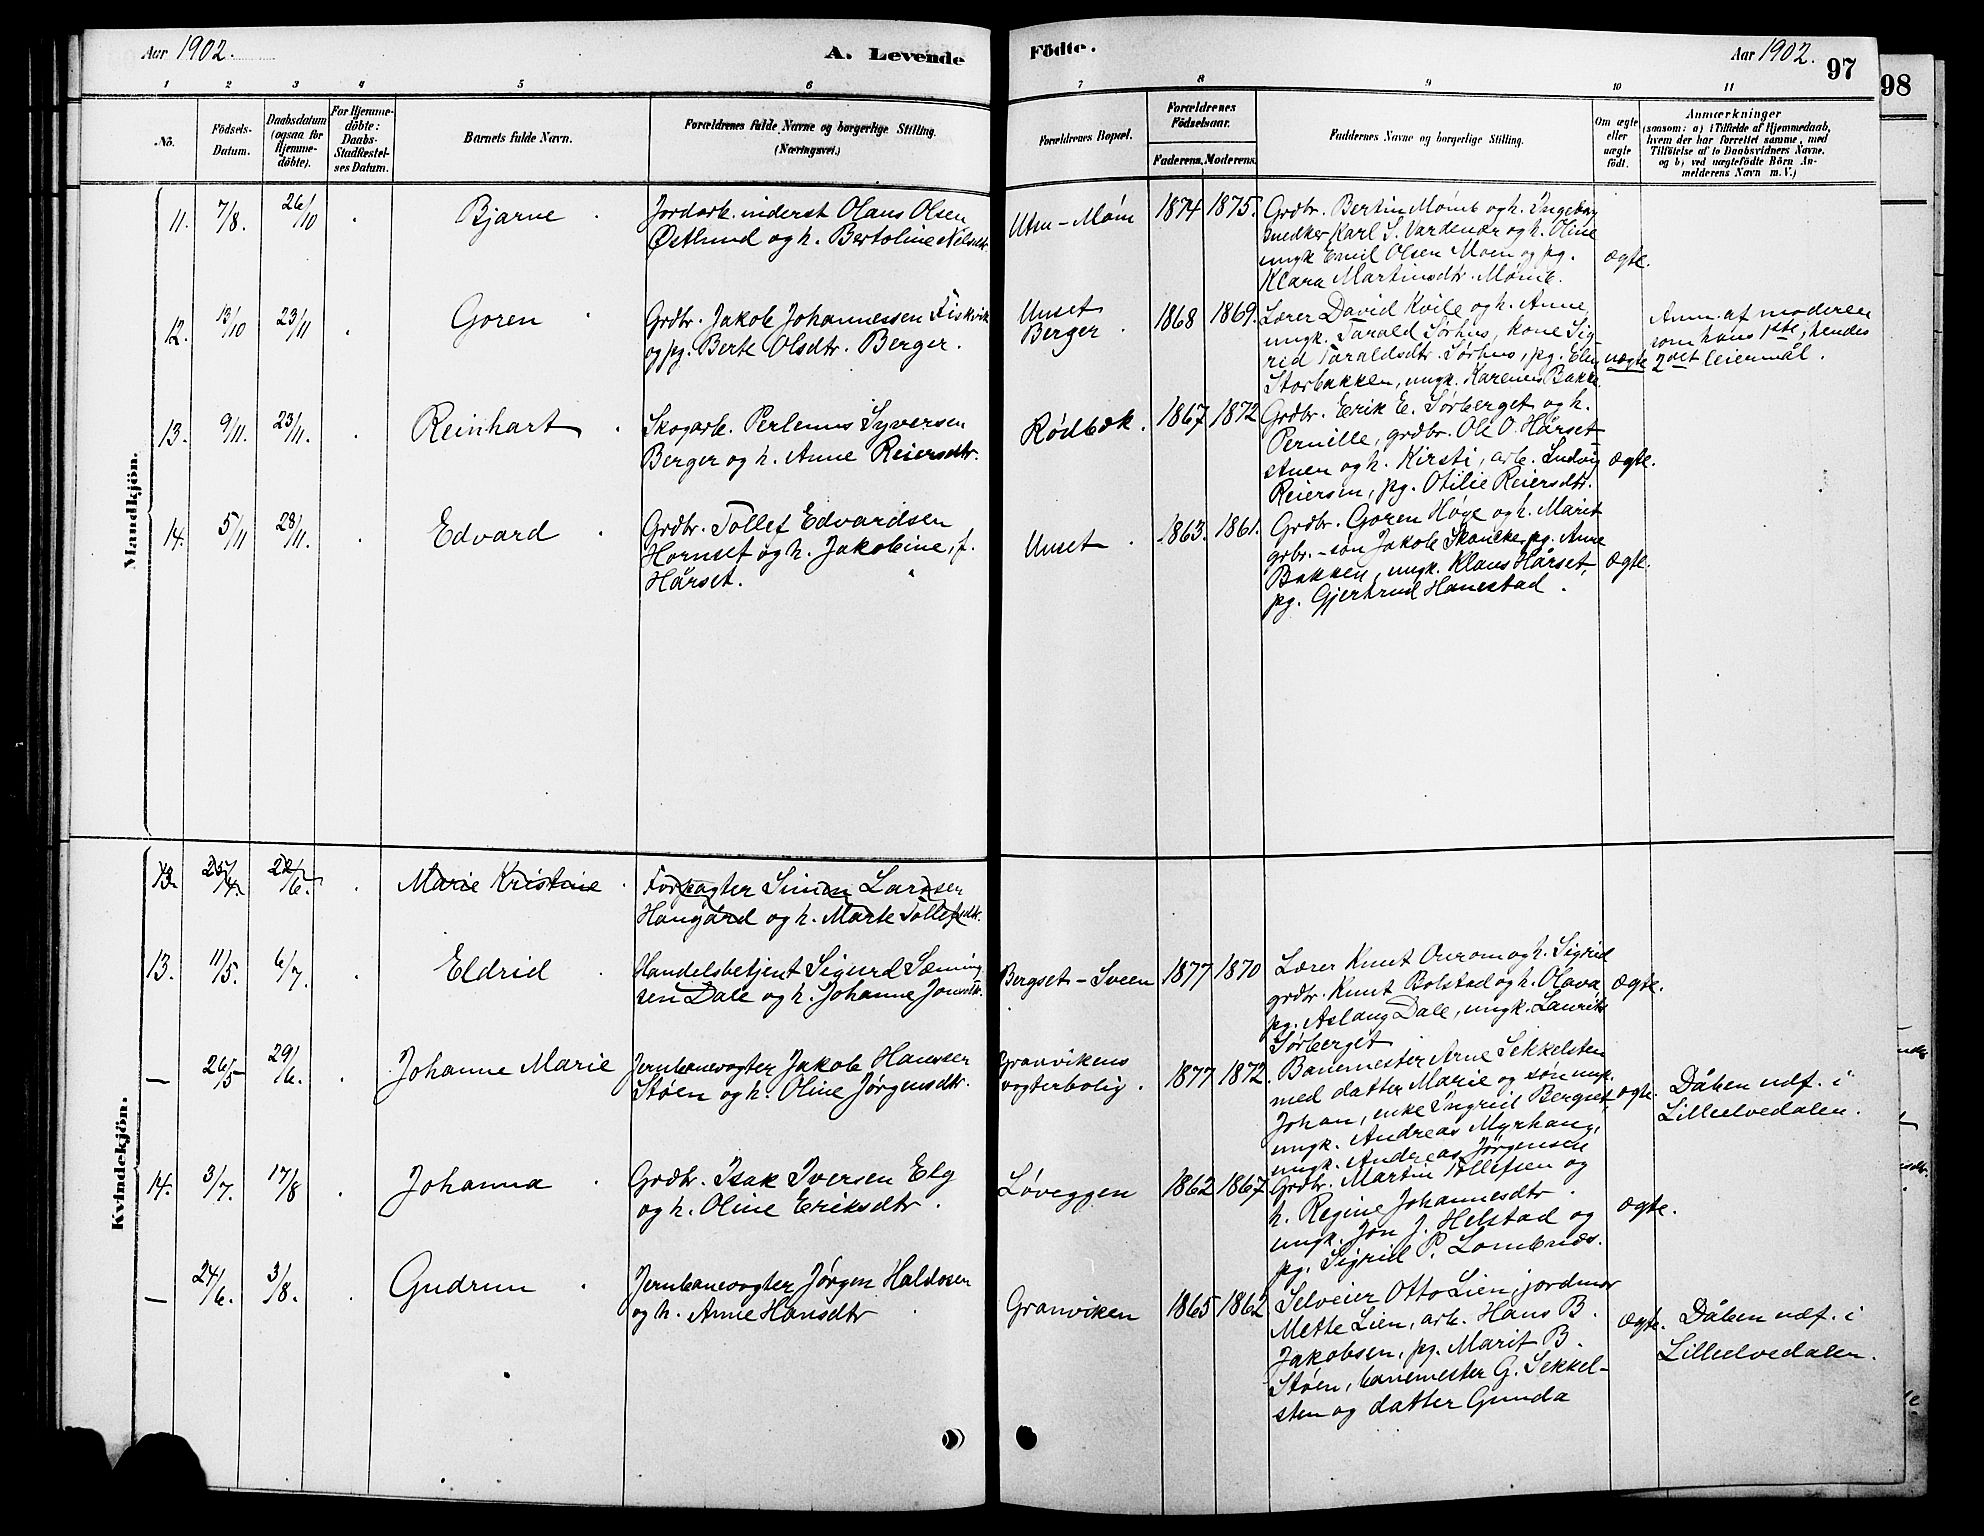 Aar 1902.
A. Levende
Födte.
Aar 1902.
97
98
1 2 3 4 5 6 7 8 9 10 11
No.
Födsels-
Datum.
Daabsdatum
(ogsaa for
Hjemme-
döbte).
For Hjemme-
döbte:
Daabs-
Stadfæstel-
ses Datum.
Barnets fulde Navn.
Forældrenes fulde Navne og borgerlige Stilling.
(Næringsvei.)
Forældrenes Bopæl.
Forældrenes
Födselsaar.
Faderens. Moderens.
Faddernes Navne og borgerlige Stilling.
Om ægte
eller
uægte
födt.
Anmærkninger
(saasom: a) i Tilfælde af Hjemmedaab,
hvem der har forrettet samme, med
Tilföielse af to Daabsvidners Navne,
og b) ved uægtefödte Börn An-
melderens Navn m. V.)
Mandkjön.
11. 7/8. 26/10 Bjarne
Jordarb. inderst Olaus Olsen
Østlund og h. Bertoline Nilsdtr.
Utm-Møm 1874 1875.
Grdbr. Bertin Mømb og h. Ingeborg
snedker Karl S. Vardenær og h. Oline
ungk Emil Olsen Moen og pg.
Klara Martinsdtr. Mømb.
ægte.
12. 13/10 23/11 Goren
Grdbr. Jakob Johannessen Fiskvik
og pg. Berte Olsdtr. Berger.
Unset
Berger. 1868 1869.
Lærer David Kvile og h. Anne,
ungk. Tarald Sørhus, kone Sig-
red Taraldsdtr. Sørhus, pg. Elen
Storbakken, ungk. Karenus Bakke
uægte
Anm. af moderen
som hans 1ste, hendes
2det leiermål.
13. 9/11. 23/11. Reinhart
Skogarb. Perlenus Syversen
Berger og h. Anne Reiersdtr.
Rødbæk. 1867 1872
Grdbr. Erik E. Sørberget og h.
Pernille, grdbr. Ole O. Hårset-
stuen og h. Kirsti, arb. Ludvig
Reiersen, pg. Otilie Reiersdtr.
ægte.
14. 5/11 23/11. Edvard
Grdbr. Tollef Edvardsen
Hornset og h. Jakobine, f.
Hårset.
Unset 1863. 1861.
Grdbr. Goren Høye og h. Marit
grbr.-søn Jakob Skancke, pg. Anne
Bakken, ungk. Klaus Hårset,
pg. Gjertrud Hanestad.
ægte.
Kvindekjön.
13. 25/4. 22/6. Marie Kristine
Forpagter Simen Larssen
Haugård og h. Marte Tollefsdtr.
13. 11/5. 6/7. Eldrid
Handelsbetjent Sigurd Sæming-
sen Dale og h. Johanne Jonsdtr.
Bergset-Sveen 1877 1870
Lærer Knut Aurom og h. Sigrid
grdbr. Knut Bolstad og h. Olava,
pg. Aslaug Dale, ungk. Laurits
Sørberget
ægte.
— 26/5 29/6. Johanne Marie
Jernbanevogter Jakob Hanssen
Støen og h. Oline Jørgensdtr.
Granvikens
vogterbolig. 1877 1872.
Banemester Arne Sekkelsten
med datter Marie og søn ungk.
Johan, enke Ingrid Bergset,
ungk. Andreas Myrhaug,
ungk. Andreas Jørgensen
ægte.
Dåben udf. i
Lilleelvedalen.
14. 3/7. 17/8 Johanna
Grdbr. Isak Iversen Elg
og h. Oline Eriksdtr.
Løveggen 1862 1867
Grdbr. Martin Tollefsen og
h. Regine Johannesdtr.
ungk. Jon J. Helstad og
pg. Sigrid P. Lombnæs.
ægte.
— 24/6. 3/8. Gudrun
Jernbanevogter Jørgen Haldosen
og h. Anne Hansdtr
Granviken 1865 1862
Selveier Otto Lien, jordmor
Mette Lien, arb. Hans B.
Jakobsen, pg. Marit B.
Støen, banemester G. Sekkel-
sten og datter Gunda
ægte.
Dåben udf. i
Lilleelvedalen.